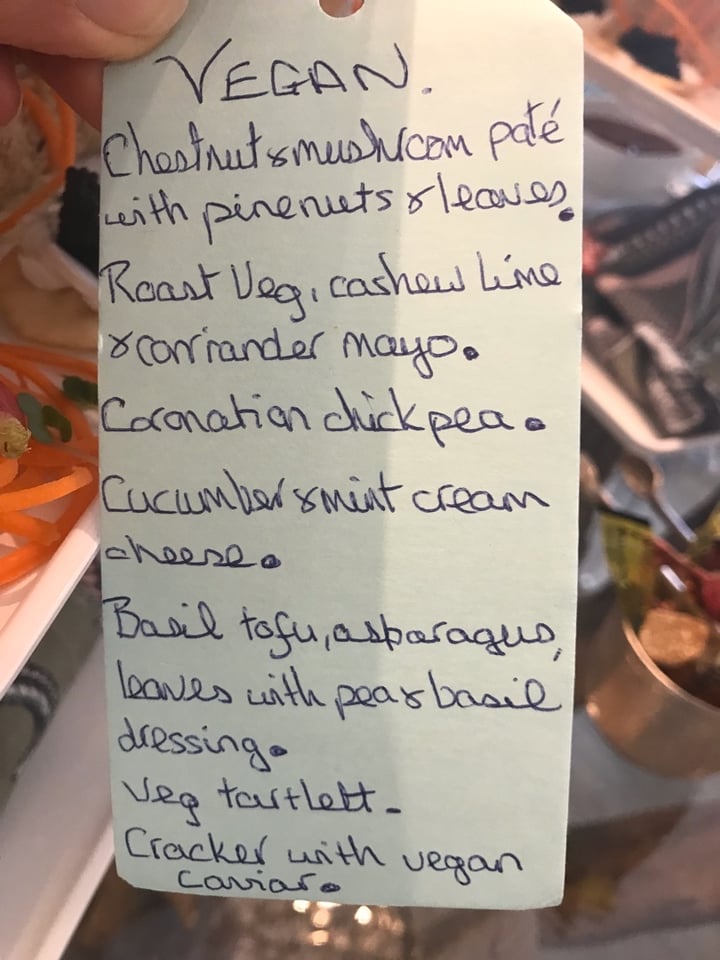 VEGAN.
Chestnut & mushroom paté
with pinenuts & leaves.
Roast Veg, cashew lime
& corriander mayo.
Coronation chickpea.
Cucumber & mint cream
cheese.
Basil tofu, asparagus,
leaves with pea & basil
dressing.
Veg tartlett.
Cracker with vegan
caviar.